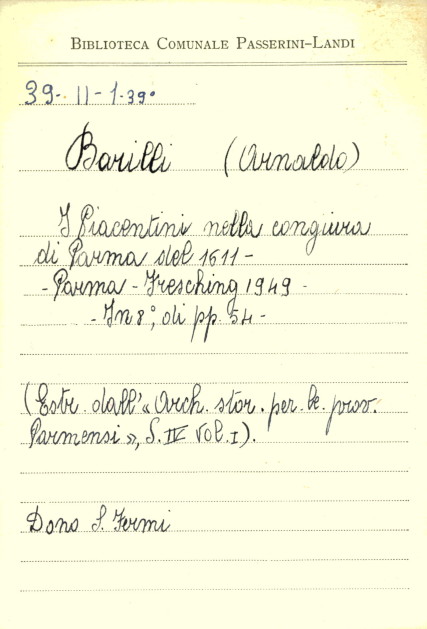 BIBLIOTECA COMUNALE PASSERINI-LANDI
39-II-1-39°
Barilli (Arnaldo)
I Piacentini nella congiura
di Parma del 1611-
- Parma - Fresching 1949 -
- In 8°, di pp. 54 -
(Estr. dall'« Arch. stor. per. le. prov.
Parmensi », S. IV Vol. I).
Dono S. Fermi